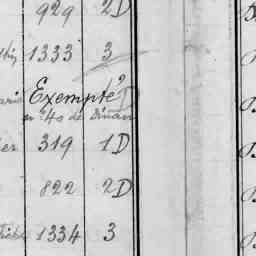 929 2D
1333 3
Exempté
n° 40 de Dinan
319 1D
822 2D
1334 3